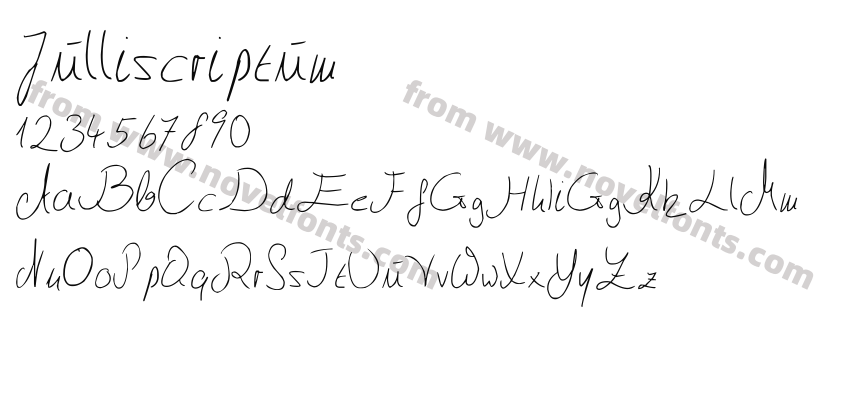 Julliscriptum
1234567890
AaBbCcDdEeFfGgHhIiGgKkLlMm
NnOoPpQqRrSsTtUuVvWwXxYyZz
from www.novelfonts.com
from www.novelfonts.com